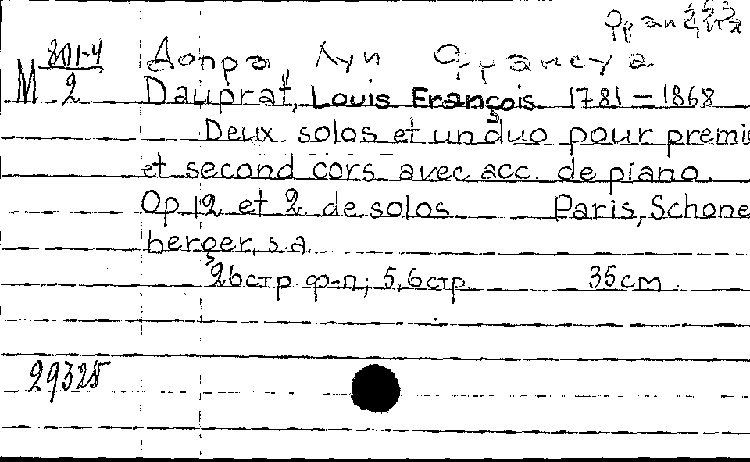 М 801-4
2
Допра, Луи Франсуа
Dauprat, Louis François 1781-1868
Deux solos et un duo pour premi
et second cors avec acc. de piano.
Op 12 et 2 de solos Paris, Schone
berger, s.a.
26стр ф-п; 5,6стр 35см.
29325